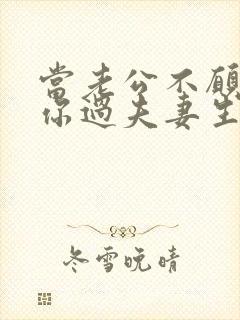 當老公不願
你過夫妻生
冬雪晚晴